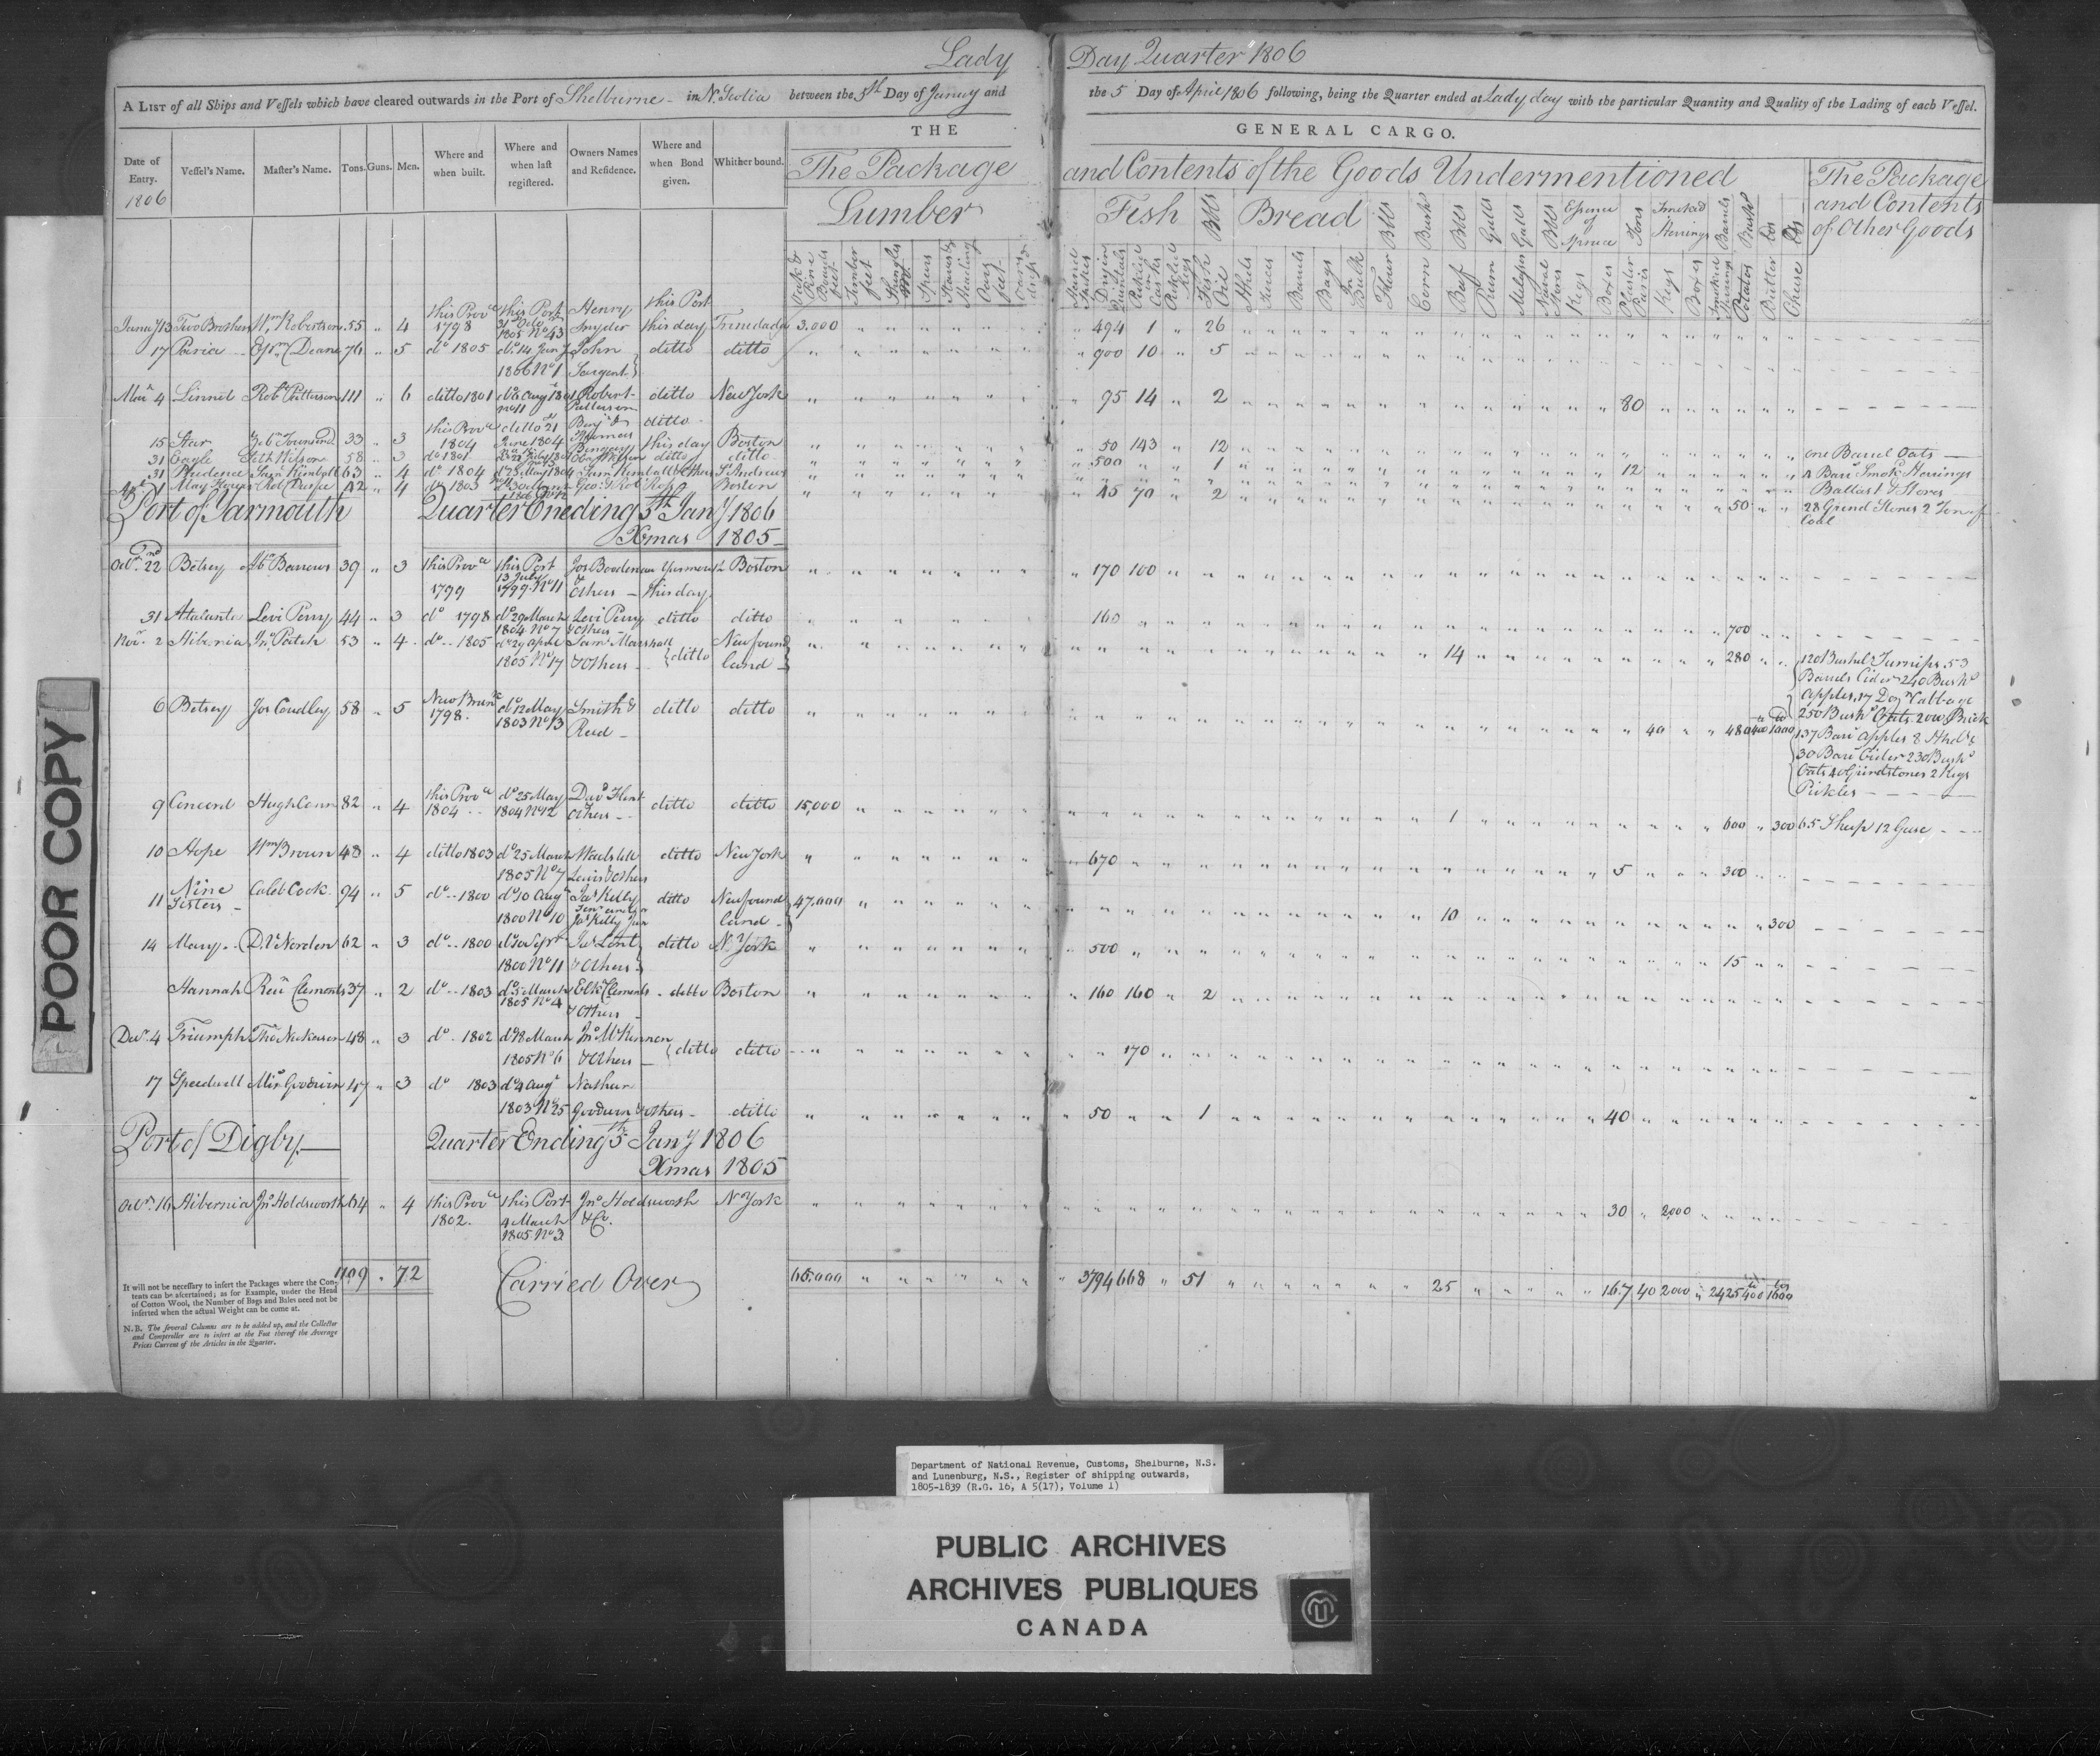 Lady Day Quarter 1806
A LIST of all Ships and Vessels which have cleared outwards in the Port of Shelburne in N. Scotia between the 5th Day of Janury and the 5 Day of April 1806 following, being the Quarter ended at Lady day with the particular Quantity and Quality of the Lading of each Vessel.
THE GENERAL CARGO.
Date of Entry. 1806 Vessel's Name. Master's Name. Tons. Guns. Men. Where and when built. Where and when last registered. Owners Names and Residence. Where and when Bond given. Whither bound.
The Package and Contents of the Goods Undermentioned
The Package and Contents of Other Goods
Lumber Fish Bbls Bread Bbls Bush Bbls Galls Galls Bbls Essence of Spruce Tons Smoked Herrings Barrels Bush
Oak & Pine Boards feet Timber feet Shingles Spars Staves & Heading
Quintals Pickled in Casks Pickled Kegs Fish Oil Hhds Tierces Barrels Bags In Bulk Flour Corn Beef Rum Melasses Naval Stores Kegs Boxes Plaister Paris Kegs Boxes Potatos Butter Cheese
Janury 13 Two Brothers Wm Robertson 55 " 4 this Prove 1798 this Port 31 Octr 1805 No 43 Henry Snyder this Port this day Trinedada 3.000 494 1 " 26
17 Deane 76 " 5 do 1805 do 14 Jany 1806 No 1 John Sargent ditto ditto 900 10 " 5
Mar 4 Linnet Robt Patterson 111 " 6 ditto 1801 No 11 Robert Patterson ditto New York 95 14 " 2 80
15 Star Townsend 33 " 3 this Prove 1804 ditto 21 June 1804 Benjn ditto this day Boston 50 143 " 12 one Barrel Oats
31 Eagle Seth Wilson 58 " 3 do 1801 ditto ditto 500 " " 1
31 Prudence Saml Kimball 63 " 4 do 1804 Sam Kimball & Others St Andrews 12 Ballast & Stores
1 May Flower 42 " 4 do 1803 Geo & Rob Ross Boston 45 70 " 2 50 28 Grind Stones 2 Tons of Coal
Port of Yarmouth Quarter Eneding 5th Jany 1806
Xmas 1805
Octr 22nd Betsey Barrows 39 " 3 this Prove 1799 this Port 13 July 1799 No 11 & Others Yarmouth this day Boston 170 100
31 Atalanta Levi Perry 44 " 3 do 1798 do 29 March 1804 No 7 Levi Perry & Others ditto ditto 160 700
Novr 2 Hibernia Jno Patch 53 " 4 do 1805 do 29 April 1805 No 17 Saml Marshall & Others ditto Newfound land 14 280 120 Bushel Turnips 53
Barrels Cider 240 Bushs
Apples, 17 Doz Cabbage
6 Betsey Jos Coudley 58 " 5 New Brunk 1798 do 12 May 1803 No 13 Smith & Reed ditto ditto 40 480 400 1000 250 Bushs Oats 200 Brick
137 Barr Apples 8 Hhds
30 Barr Cider 230 Bushs
Oats 40 Grindstones 2 Kegs
Pickles
9 Concord Hugh Conn 82 " 4 this Prove 1804 do 25 May 1804 No 12 Davd Flint Others ditto ditto 15,000 1 600 " 300 65 Sheep 12 Geese
10 Hope Wm Brown 48 " 4 ditto 1803 do 25 March 1805 No 7 Lewis & Others ditto New York 670 5 300
11 Nine Sisters Caleb Cook 94 " 5 do 1800 do 30 Augt 1800 No 10 Jas Kelly Senr and Jas Kelly Jun ditto Newfound land 47,000 10 300
14 Mary Norden 62 " 3 do 1800 do 30 Septr 1800 No 11 Jas Lent & Others ditto N. York 500 15
Hannah Reun Clements 37 " 2 do 1803 do 5 March 1805 No 4 Clements & Others ditto Boston 160 160 " 2
Decr 4 Triumph Thos Nickerson 48 " 3 do 1802 do 18 March 1805 No 6 Jno McKinnon & Others ditto ditto 170
17 Speedwell Goodwin 47 " 3 do 1803 do 4 Augt 1803 No 25 Nathan Goodwin & Others ditto 50 " " 1 40
Port of Digby Quarter Ending 5th Jany 1806
Xmas 1805
Octr 16 Hibernia Jno Holdsworth 64 " 4 this Prove 1802 this Port 4 March 1805 No 3 Jno Holdsworth & Co. N York 30 " 2000
1709 " 72 Carried Over 65.000 3794 668 " 51 25 167 40 2000 " 2425 400 1600
It will not be necessary to insert the Packages where the Contents can be ascertained; as for Example, under the Head of Cotton Wool, the Number of Bags and Bales need not be inserted when the actual Weight can be come at.
N.B. The several Columns are to be added up, and the Collector and Comptroller are to insert at the Foot thereof the Average Prices Current of the Articles in the Quarter.
POOR COPY
Department of National Revenue, Customs, Shelburne, N.S.
and Lunenburg, N.S., Register of shipping outwards,
1805-1839 (R.G. 16, A 5(17), Volume 1)
PUBLIC ARCHIVES
ARCHIVES PUBLIQUES
CANADA